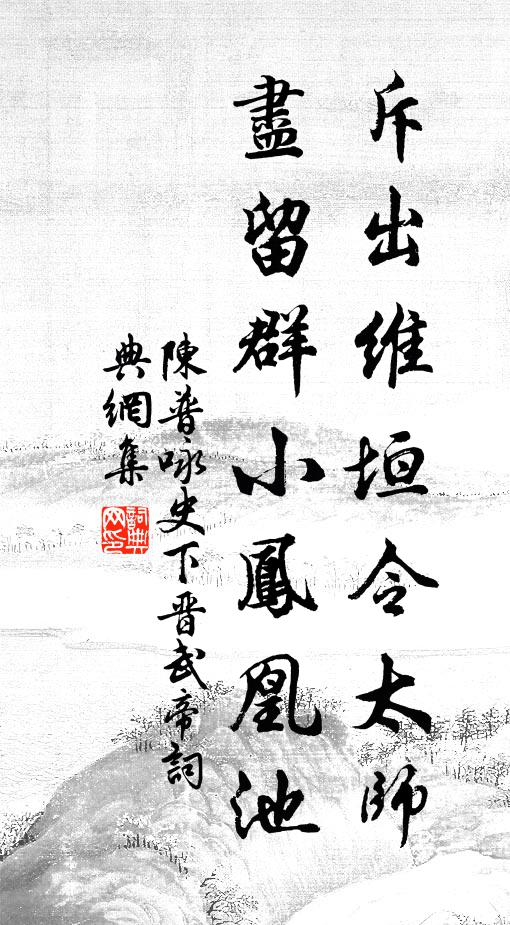 斥出維垣令太師
盡留群小鳳凰池
陳普咏史下晋武帝詞
典網集
詞典
网印